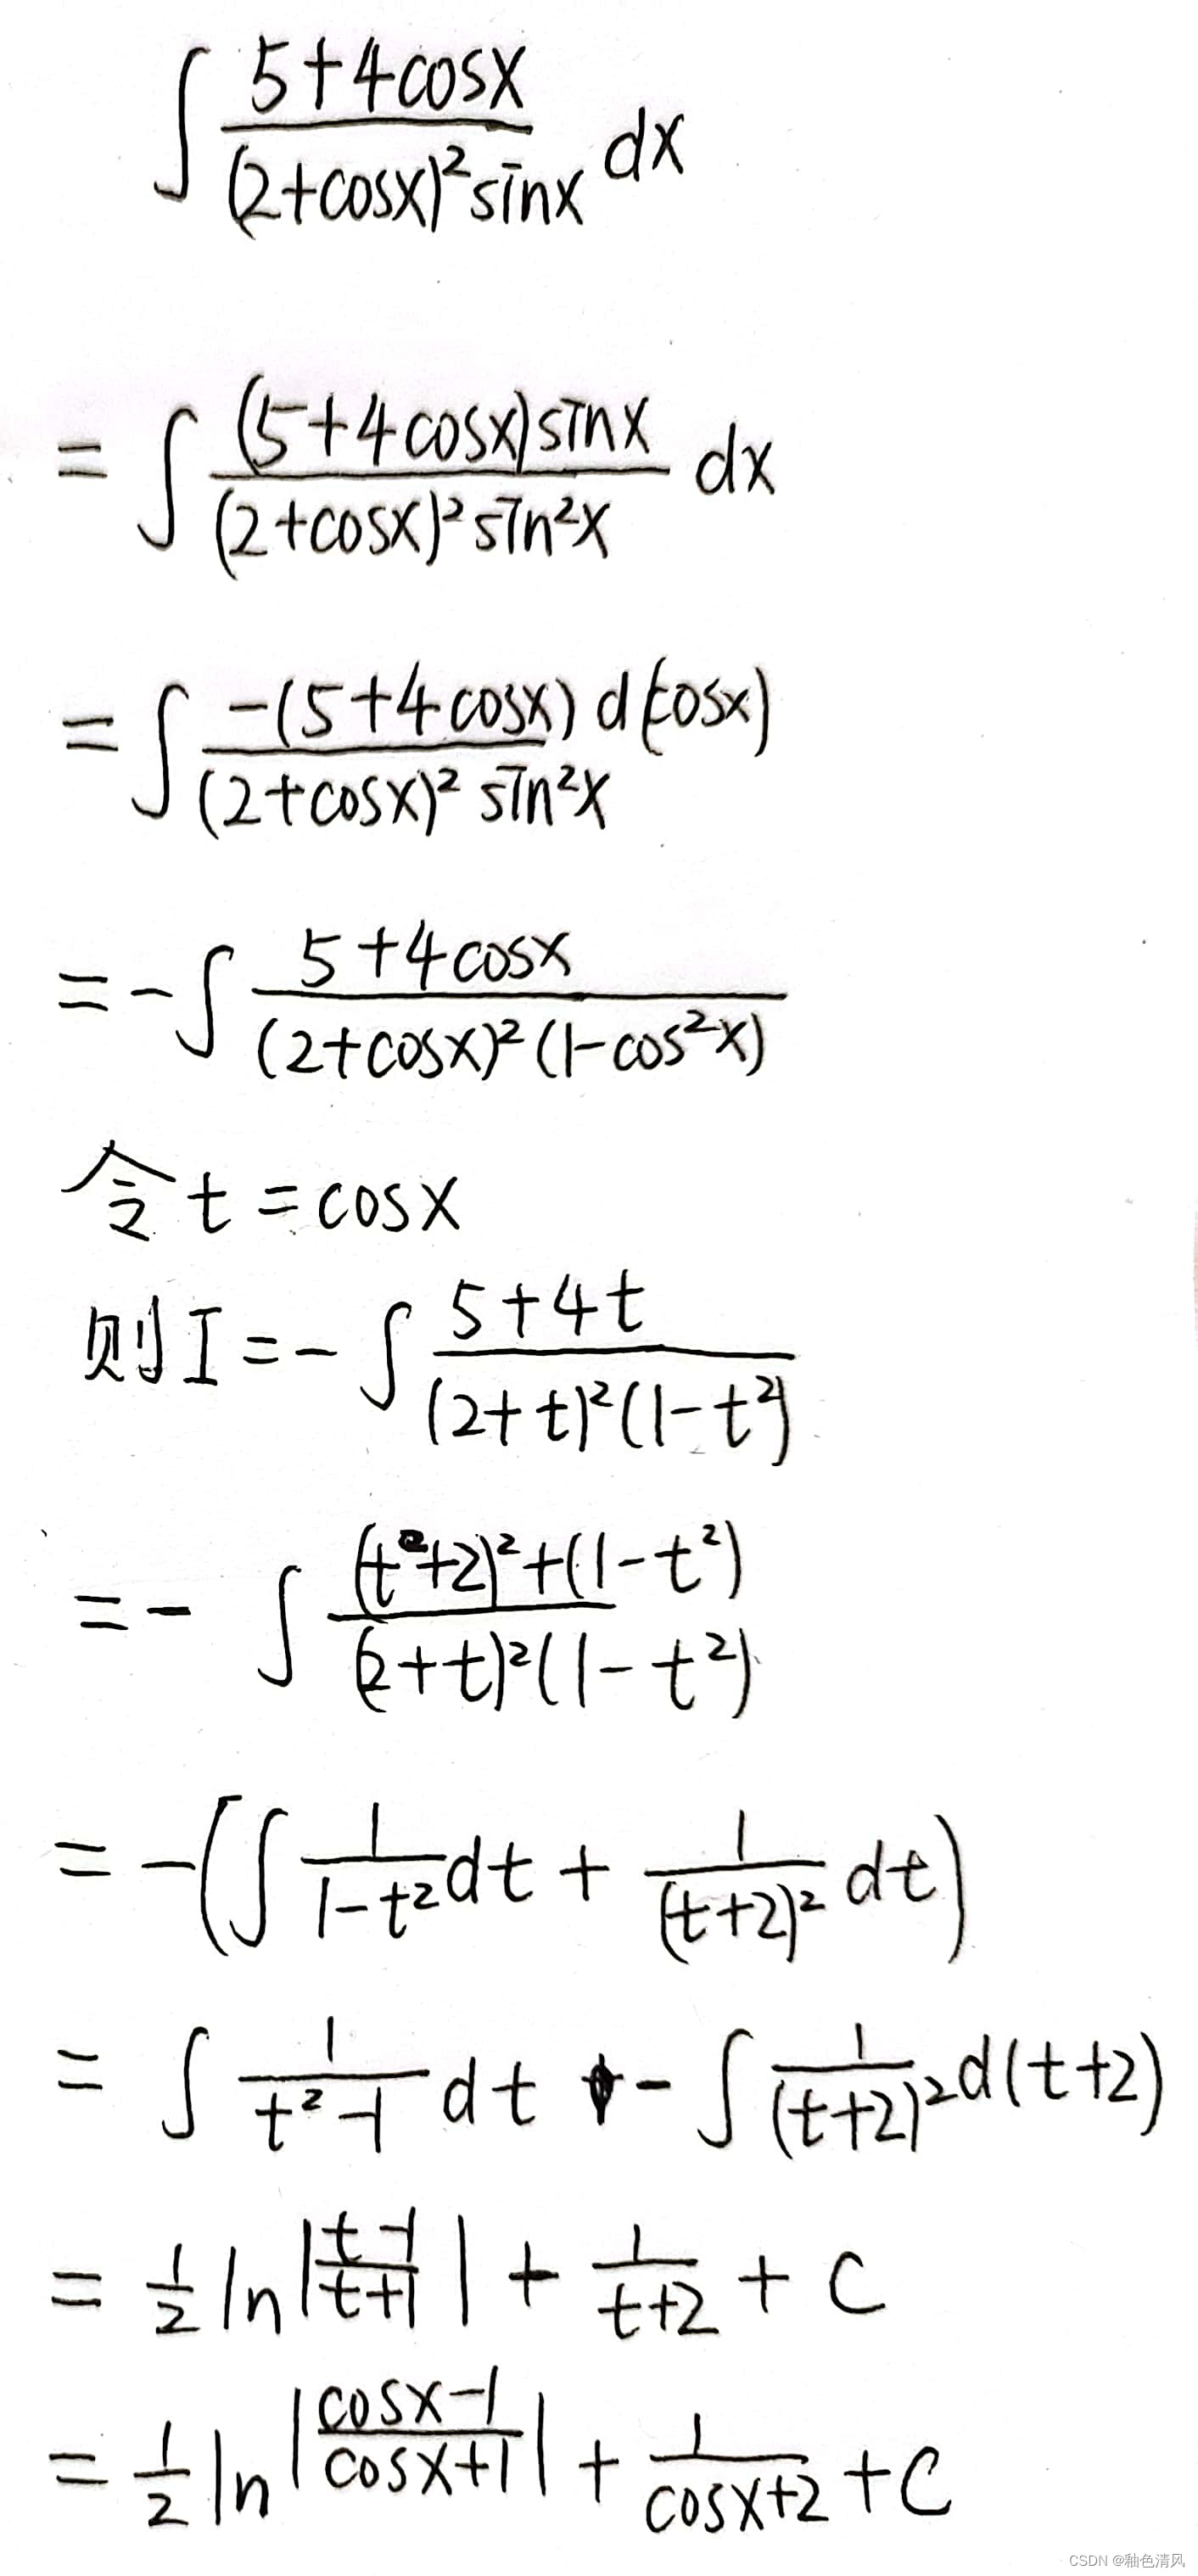 ∫ (5+4cosx)/((2+cosx)²sinx) dx
= ∫ ((5+4cosx)sinx)/((2+cosx)²sin²x) dx
= ∫ (-(5+4cosx) d(cosx))/((2+cosx)² sin²x)
= -∫ (5+4cosx)/((2+cosx)²(1-cos²x))
令 t = cosx
则 I = -∫ (5+4t)/((2+t)²(1-t²))
= -∫ ((t+2)²+(1-t²))/((2+t)²(1-t²))
= -(∫ 1/(1-t²) dt + 1/(t+2)² dt)
= ∫ 1/(t²-1) dt - ∫ 1/(t+2)² d(t+2)
= 1/2 ln|(t-1)/(t+1)| + 1/(t+2) + C
= 1/2 ln|(cosx-1)/(cosx+1)| + 1/(cosx+2) + C
CSDN @釉色清风